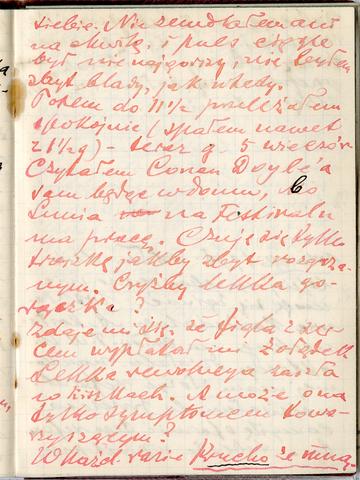 siebie. Nie zemdlałem ani
na chwilę, i puls ciągle
był nie najgorszy, nie byłem
zbyt blady, jak wtedy.
Potem do 11½ przeleżałem
spokojnie (spałem nawet
z 1½ g) – teraz g. 5 wieczór
Czytałem Conan Doyle'a
sam będąc w domu, bo
Lunia na Festivalu
ma pracę. Czuję się tylko
troszkę jakby zbyt rozgrza-
nym. Czyżby lekka go-
rączka?
Zdaje mi się, że figla z ser-
cem wypłatał mi żołądek
Lekka rewolucja zaszła
w kiszkach. A może ona
tylko symptomem towa-
rzyszącym?
W każd. razie Krucho ze mną.